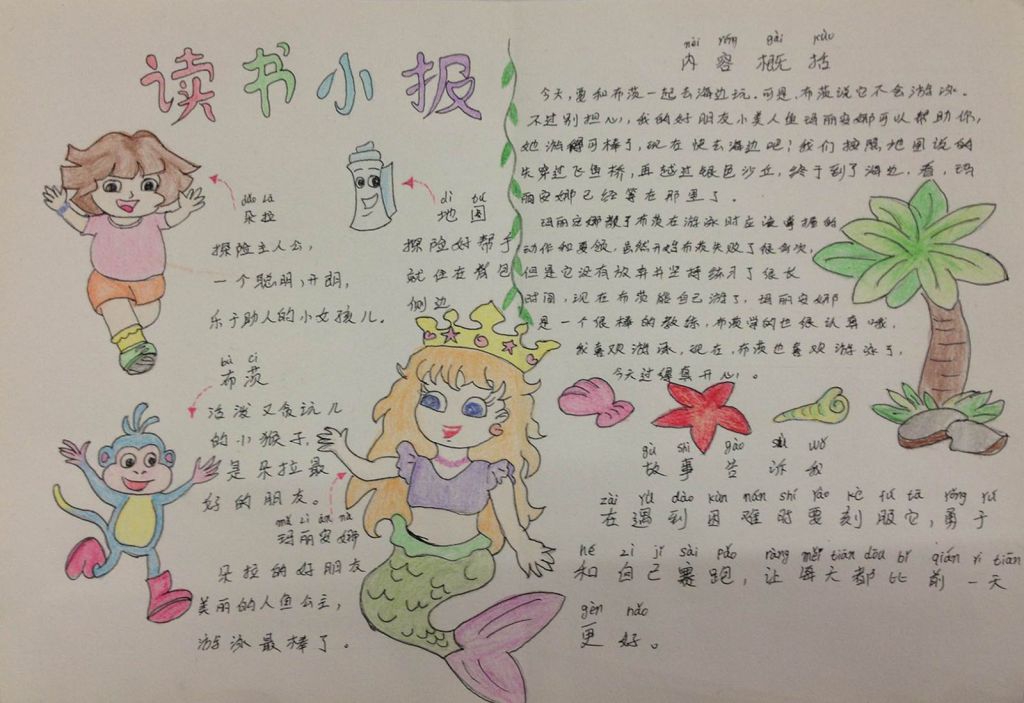 读书小报
duo la
朵拉
探险主人公，
一个聪明，开朗，
乐于助人的小女孩儿。
dì tú
地图
探险好帮手
就住在背包
侧边
bù cí
布茨
活泼又贪玩儿
的小猴子，
是朵拉最
好的朋友。
mǎ lì ān nà
玛丽安娜
朵拉的好朋友
美丽的人鱼公主，
游泳最棒了。
nèi róng gài kuò
内容概括
今天，要和布茨一起去海边玩。可是，布茨说它不会游泳。
不过别担心，我的好朋友小美人鱼玛丽安娜可以帮助你，
她游得可棒了，现在快去海边吧！我们按照地图说的
先穿过飞鱼桥，再越过银色沙丘，终于到了海边。看，玛
丽安娜已经等在那里了。
玛丽安娜教了布茨在游泳时应该掌握的
动作和要领，虽然开始布茨失败了很多次，
但是它没有放弃并坚持练习了很长
时间，现在布茨能自己游了，玛丽安娜
是一个很棒的教练，布茨学的也很认真哦，
我喜欢游泳，现在，布茨也喜欢游泳了，
今天过得真开心！。
gù shi gào sù wǒ
故事告诉我
zài yù dào kùn nán shí yào kè fú tā yǒng yú
在遇到困难时要刻服它，勇于
hé zì jǐ sài pǎo ràng měi tiān dōu bǐ qián yì tiān
和自己赛跑，让每天都比前一天
gèn hǎo
更好。